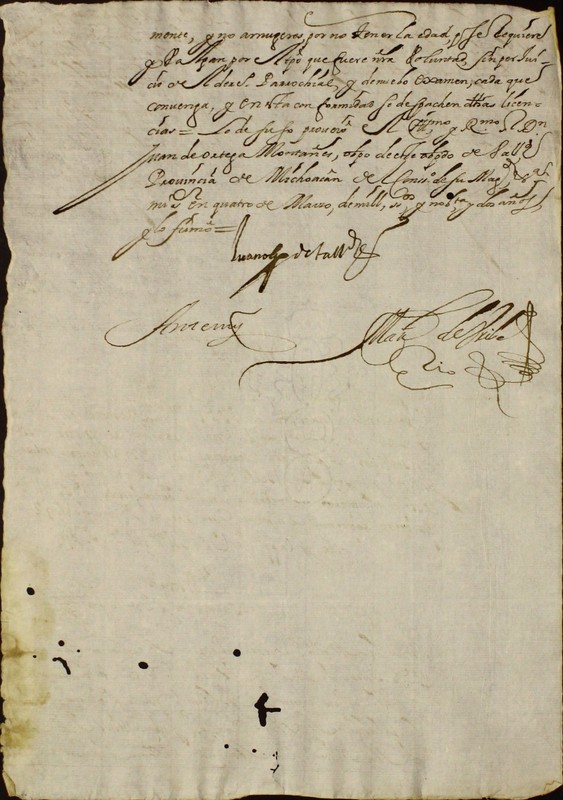 mente, y no a mugeres, por no tener la edad, q̃ se requiere
y Valgan por el tpõ, que fuere nr̃a Voluntad, sin perjui-
cio de el dr̃o Parrochial, y de nuebo examen, cada que
convenga, y en esta conformidad se despachen dhãs licen-
cias= Lo de suso proveyò el Illmo, y Rmo Sr. Dn.
Juan de Ortega Montañes, obpõ de este obpdo de Valld
Provincia de Michoacàn del Consº. de su Magd
mi s.r En quatro de Marzo, de mill, ss.os y nobta y dos años
y lo firmò=
Juan obpo de Valld
Antemy
Matheo de